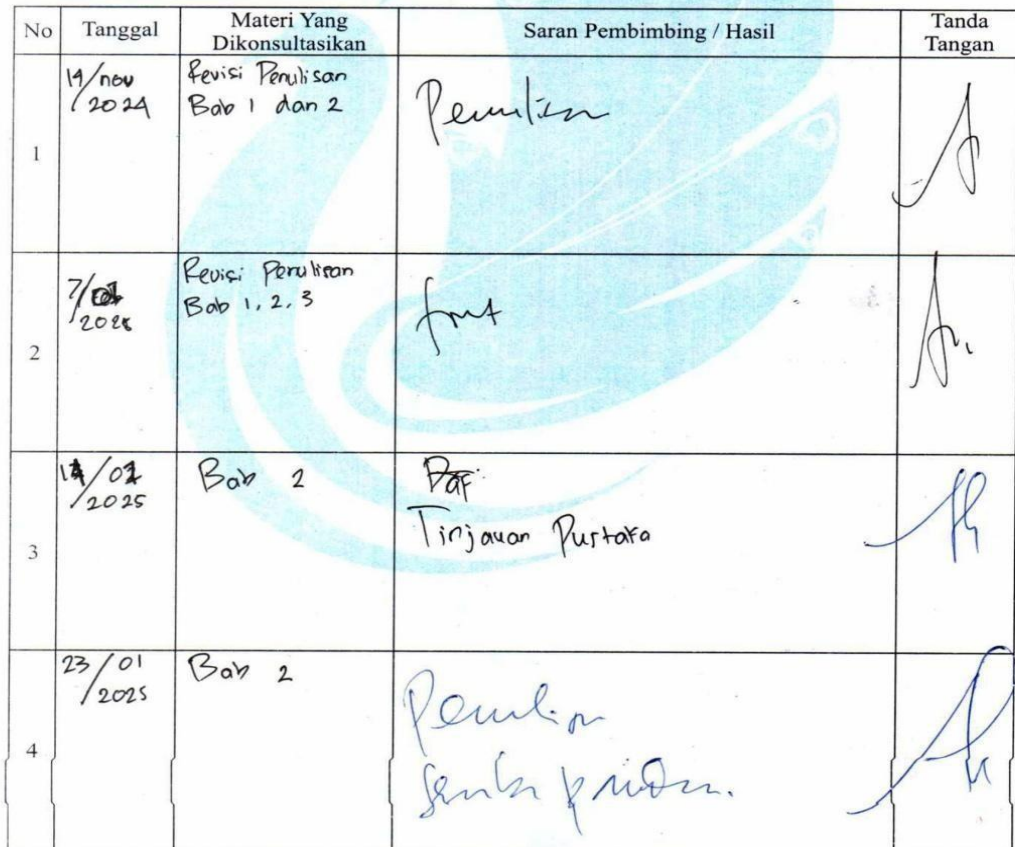 No Tanggal Materi Yang Dikonsultasikan Saran Pembimbing / Hasil Tanda Tangan
1
14/nov
/2024
Revisi Penulisan
Bab 1 dan 2
Penulisan
2
7/
2025
Revisi Penulisan
Bab 1, 2, 3
3
/01
/2025
Bab 2
Tinjauan Pustaka
4
23/01
/2025
Bab 2
Penulisan